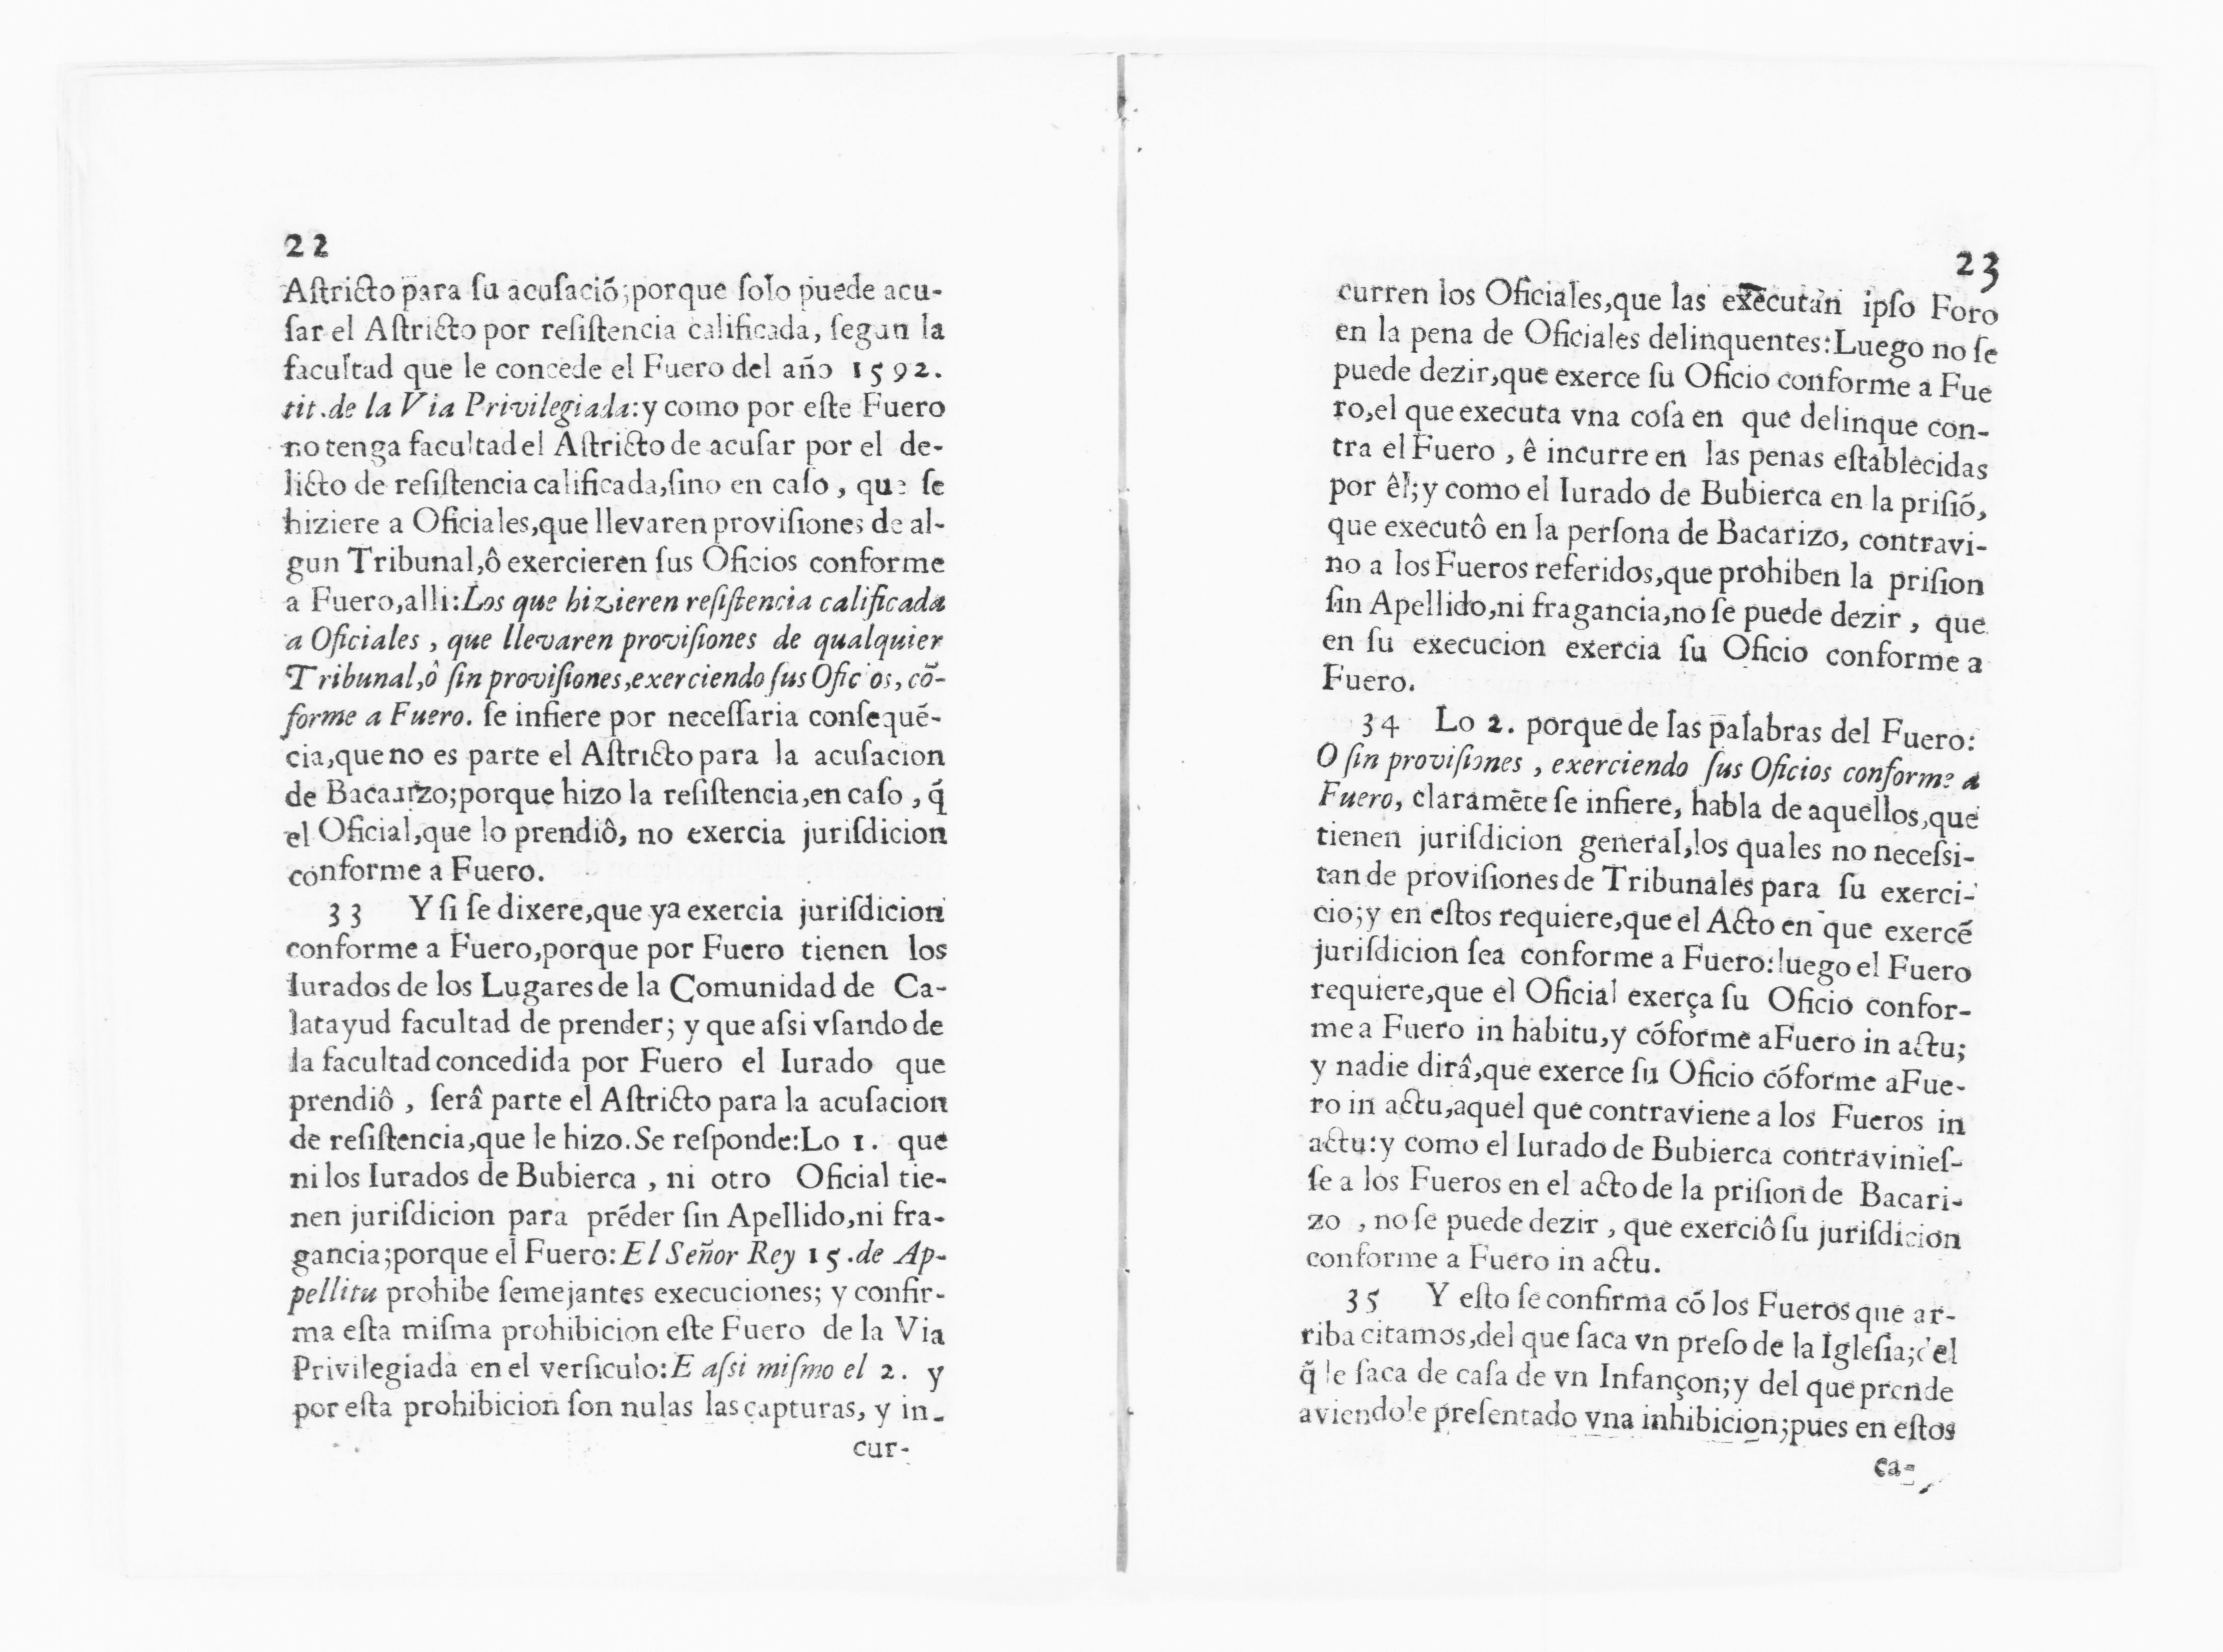 22
Aſtricto para ſu acuſació;porque ſolo puede acu-
ſar el Aſtricto por reſiſtencia calificada, ſegun la
facultad que le concede el Fuero del año 1592.
tit.de la Via Privilegiada:y como por eſte Fuero
no tenga facultad el Aſtricto de acuſar por el de-
licto de reſiſtencia calificada,ſino en caſo , que ſe
hiziere a Oficiales,que llevaren proviſiones de al-
gun Tribunal,ô exercieren ſus Oficios conforme
a Fuero,alli:Los que hizieren reſiſtencia calificada
a Oficiales , que llevaren proviſiones de qualquier
Tribunal,ô ſin proviſiones,exerciendo ſus Ofic os, cõ-
forme a Fuero. ſe infiere por neceſſaria conſequé-
cia,que no es parte el Aſtricto para la acuſacion
de Bacaarzo;porque hizo la reſiſtencia,en caſo , q̃
el Oficial,que lo prendiô, no exercia juriſdicion
conforme a Fuero.
33 Y ſi ſe dixere,que ya exercia juriſdicion
conforme a Fuero,porque por Fuero tienen los
Iurados de los Lugares de la Comunidad de Ca-
latayud facultad de prender; y que aſsi vſando de
la facultad concedida por Fuero el Iurado que
prendiô , ſerâ parte el Aſtricto para la acuſacion
de reſiſtencia,que le hizo.Se reſponde:Lo 1. que
ni los Iurados de Bubierca , ni otro Oficial tie-
nen juriſdicion para préder ſin Apellido,ni fra-
gancia;porque el Fuero:El Señor Rey 15.de Ap-
pellitu prohibe ſemejantes execuciones; y confir-
ma eſta miſma prohibicion eſte Fuero de la Via
Privilegiada en el verſiculo:E aſsi miſmo el 2. y
por eſta prohibicion ſon nulas las capturas, y in-
cur-
23
curren los Oficiales,que las executan ipſo Foro
en la pena de Oficiales delinquentes:Luego no ſe
puede dezir,que exerce ſu Oficio conforme a Fue
ro,el que executa vna coſa en que delinque con-
tra el Fuero , ê incurre en las penas eſtablecidas
por êl;y como el Iurado de Bubierca en la priſió,
que executô en la perſona de Bacarizo, contravi-
no a los Fueros referidos,que prohiben la priſion
ſin Apellido,ni fragancia,no ſe puede dezir , que
en ſu execucion exercia ſu Oficio conforme a
Fuero.
34 Lo 2. porque de las palabras del Fuero:
O ſin proviſiones , exerciendo ſus Oficios conforme a
Fuero, claraméte ſe infiere, habla de aquellos,que
tienen juriſdicion general,los quales no neceſsi-
tan de proviſiones de Tribunales para ſu exerci-
cio;y en eſtos requiere,que el Acto en que exercé
juriſdicion ſea conforme a Fuero:luego el Fuero
requiere,que el Oficial exerça ſu Oficio confor-
me a Fuero in habitu,y cóforme aFuero in actu;
y nadie dirâ,que exerce ſu Oficio cóforme aFue-
ro in actu,aquel que contraviene a los Fueros in
actu:y como el Iurado de Bubierca contravinieſ-
ſe a los Fueros en el acto de la priſion de Bacari-
zo , no ſe puede dezir , que exerciô ſu juriſdicion
conforme a Fuero in actu.
35 Y eſto ſe confirma có los Fueros que ar-
riba citamos,del que ſaca vn preſo de la Igleſia;del
q̃ le ſaca de caſa de vn Infançon;y del que prende
aviendole preſentado vna inhibicion;pues en eſtos
ca-